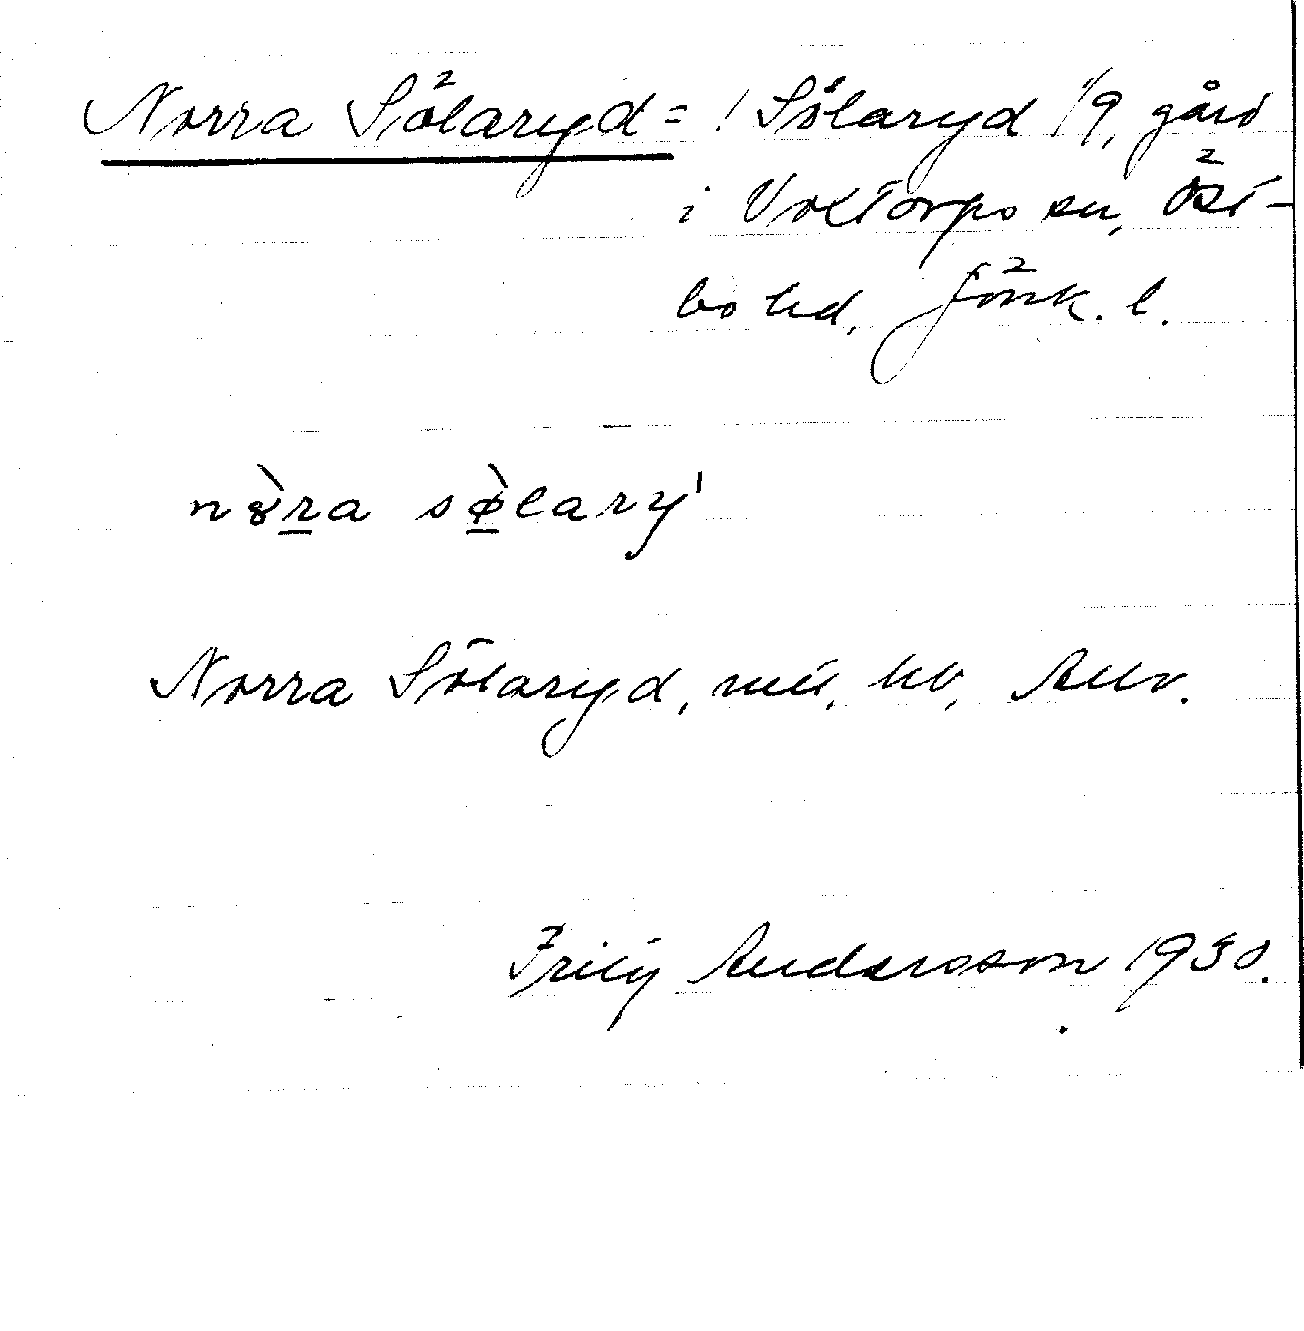 Norra Sölaryd = ! Sölaryd 1/9, gård
i Voxtorps sn, Öst-
bo hd, Jönk. l.
nȣ̀ra sø̀lary'
Norra Sölaryd, mu. hb,
Andersson 1930.